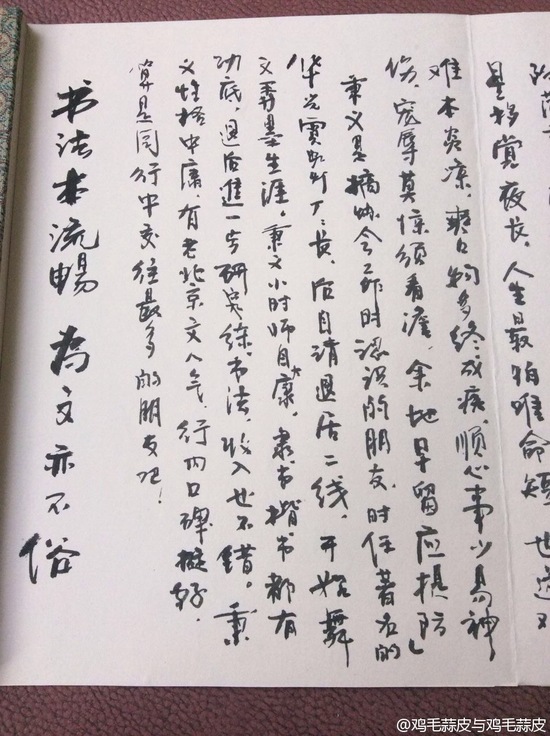 夜长、人生最怕唯命短
难本炎凉，爽口物多终成疾，顺心事少易神
伤，宠辱莫惊须看澹，余地早留应提防」
秉义是搞收会工作时认识的朋友，时任著名的
华厂长，后自请退居二线，开始舞
文弄墨生涯。秉文小时师自大康，隶书楷书都有
功底，退后进一步研究练书法，收入也不错。秉
义性格中庸，有老北京文人气，行内口碑挺好，
算是同行中交往最多的朋友吧！
书法本流畅 为文亦不俗
@鸡毛蒜皮与鸡毛蒜皮